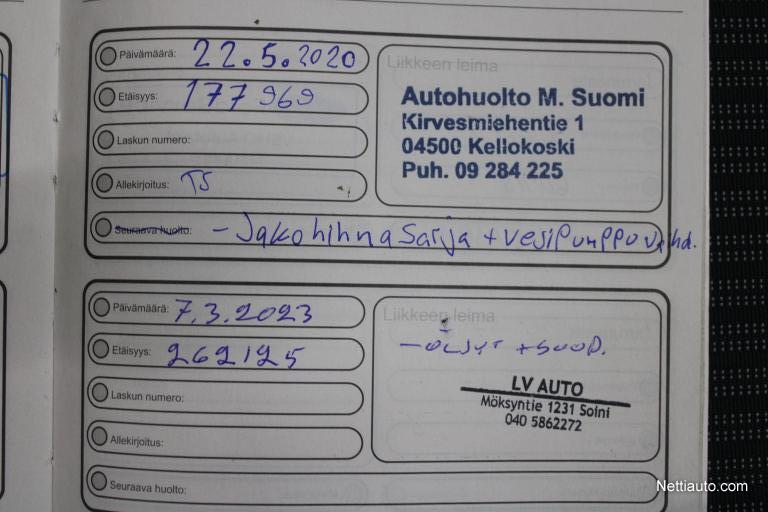 Päivämäärä: 22.5.2020
Etäisyys: 177969
Laskun numero:
Allekirjoitus: TS
Liikkeen leima
Autohuolto M. Suomi
Kirvesmiehentie 1
04500 Kellokoski
Puh. 09 284 225
Seuraava huolto: - Jakohihnasarja + vesipumppu vaihd.
Päivämäärä: 7.3.2023
Etäisyys: 262125
Laskun numero:
Allekirjoitus:
Liikkeen leima
- öljyt + suod.
LV AUTO
Möksyntie 1231 Soini
040 5862272
Seuraava huolto:
Nettiauto.com